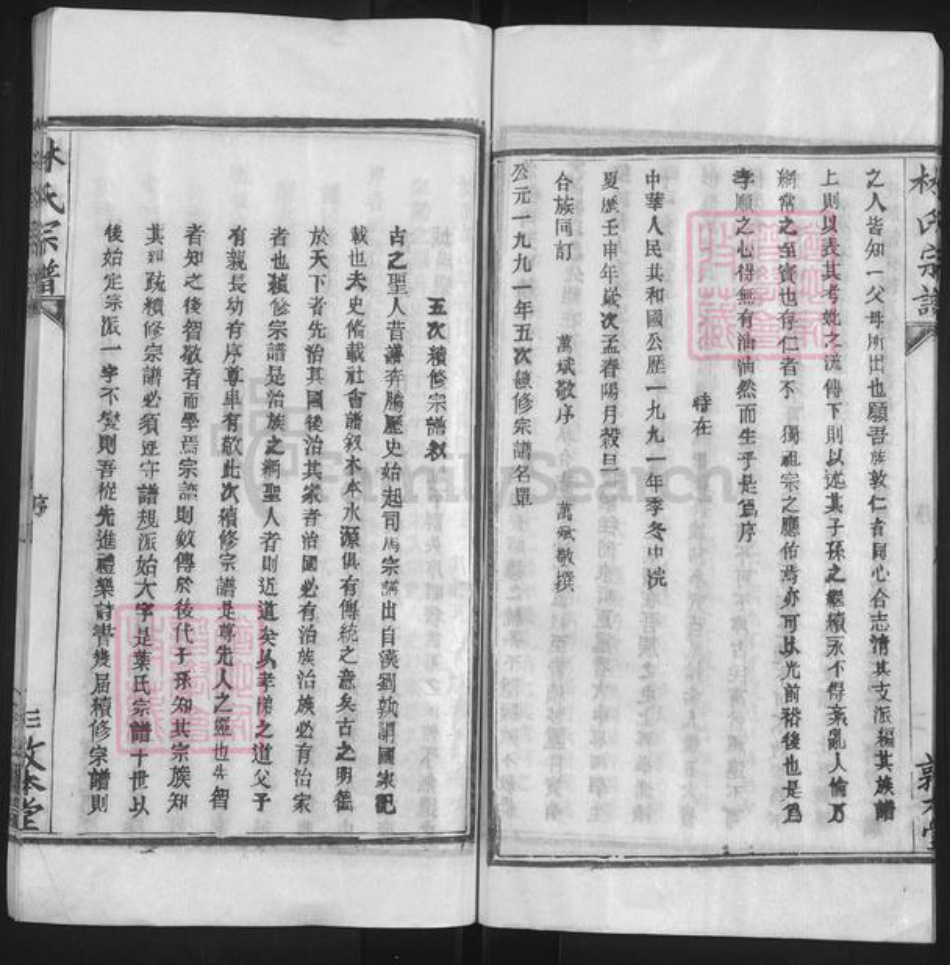 林氏宗譜
敦本堂
之人皆知一父母所出也願吾族敦仁者同心合志清其支派編其族譜
上則以表其考妣之流傳下則以述其子孫之繼續永不得紊亂人倫乃
綱常之至寶也存仁者不獨祖宗之應佑焉亦可以光前裕後也是爲
孝順之心得無有油油然而生乎是爲序
時在
中華人民共和國公歷一九九一年季冬中浣
夏歷壬申年歲次孟春陽月穀旦
合族同訂 萬斌敬序 萬斌敬撰
公元一九九一年五次續修宗譜名單
五次積修宗譜叙
古之聖人昔譜奔騰歷史始起司馬宗譜出自漢劉執謂國家記
載也夫史俻載社會譜叙木本水源俱有傳統之意矣古之明德
於天下者先治其國後治其家者治國必有治族治族必有治家
者也積修宗譜是治族之綱聖人者則近道矣以孝悌之道父子
有親長幼有序尊卑有敬此次積修宗譜是尊先人之經也先智
者知之後智敬者而學焉宗譜則敘傳於後代子孫知其宗族知
其親疏積修宗譜必須遵守譜規派始大字是葉氏宗譜十世以
後始定宗派一字不變則吾從先進禮樂詩書幾届積修宗譜則
林氏宗譜
序
三
敦本堂
FamilySearch